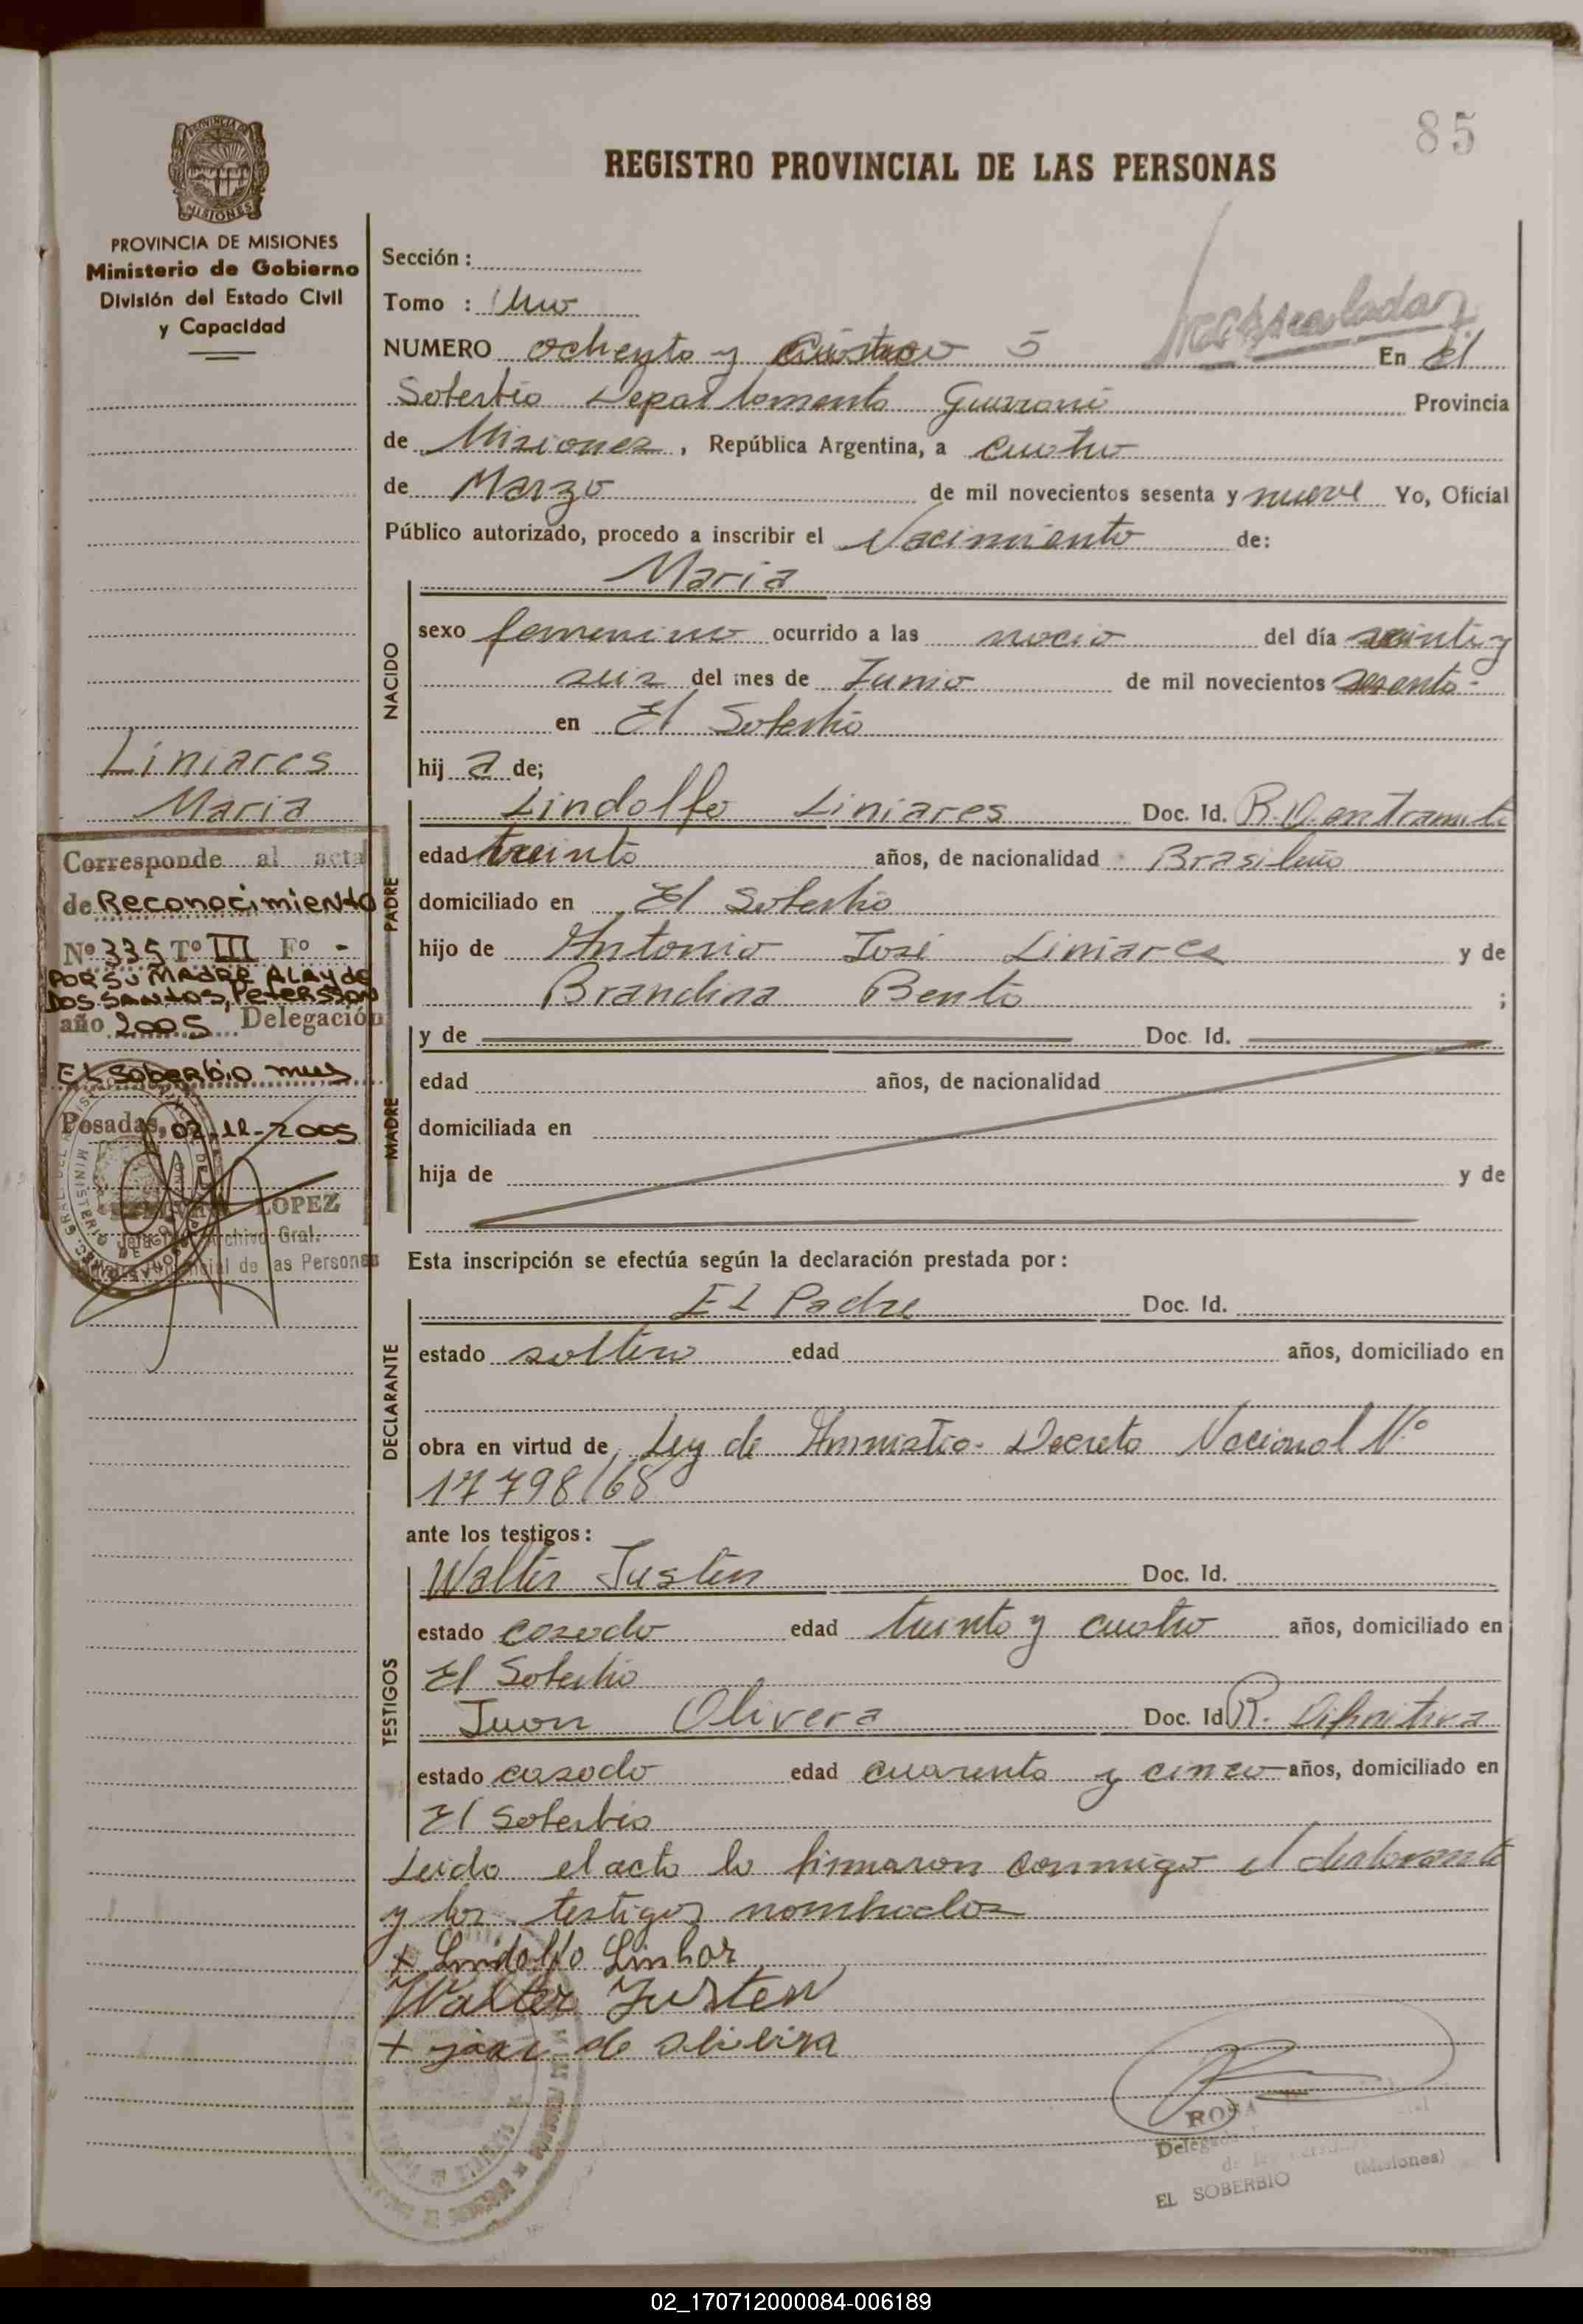 85
REGISTRO PROVINCIAL DE LAS PERSONAS
PROVINCIA DE MISIONES
MISIONES
PROVINCIA DE MISIONES
Ministerio de Gobierno
División del Estado Civil
y Capacidad
Sección :
Tomo : Uno
NUMERO ochenta y 5 En El
Soberbio Departamento Guarani Provincia
de Misiones, República Argentina, a cuatro
de Marzo de mil novecientos sesenta y nueve Yo, Oficial
Público autorizado, procedo a inscribir el Nacimiento de:
Maria
NACIDO
sexo femenino ocurrido a las del día veinte y
seis del mes de Junio de mil novecientos sesenta -
en El Soberbio
hij a de;
Liniares
Maria
PADRE
Lindolfo Liniares Doc. Id. R. N. en tramite
edad treinta años, de nacionalidad Brasileño
domiciliado en El Soberbio
hijo de Antonio José Liniares y de
Brandina Bento ;
Corresponde al acta
de Reconocimiento
Nº 335 Tº III Fº -
POR SU MADRE ALAYDE
DOS SANTOS, PETERSSON
año 2005 Delegación
El Soberbio mnes
Posadas, 02-12-2005
LOPEZ
Archivo Gral.
Provincial de las Personas
MADRE
y de Doc. Id.
edad años, de nacionalidad
domiciliada en
hija de y de
Esta inscripción se efectúa según la declaración prestada por :
DECLARANTE
El Padre Doc. Id.
estado soltero edad años, domiciliado en
obra en virtud de, Ley de Amnistia - Decreto Nacional Nº
17798/68
ante los testigos :
TESTIGOS
Walter Justen Doc. Id.
estado casado edad treinta y cuatro años, domiciliado en
El Soberbio
Juan Olivera Doc. Id R. Difinitiva
estado casado edad cuarenta y cinco años, domiciliado en
El Soberbio
Leido el acta la firmaron conmigo el declarante
y los testigos nombrados
+ Lindolfo Linhar
Walter Justen
+ de oliveira
ROSA
Delegado
EL SOBERBIO (Misiones)
02_170712000084-006189